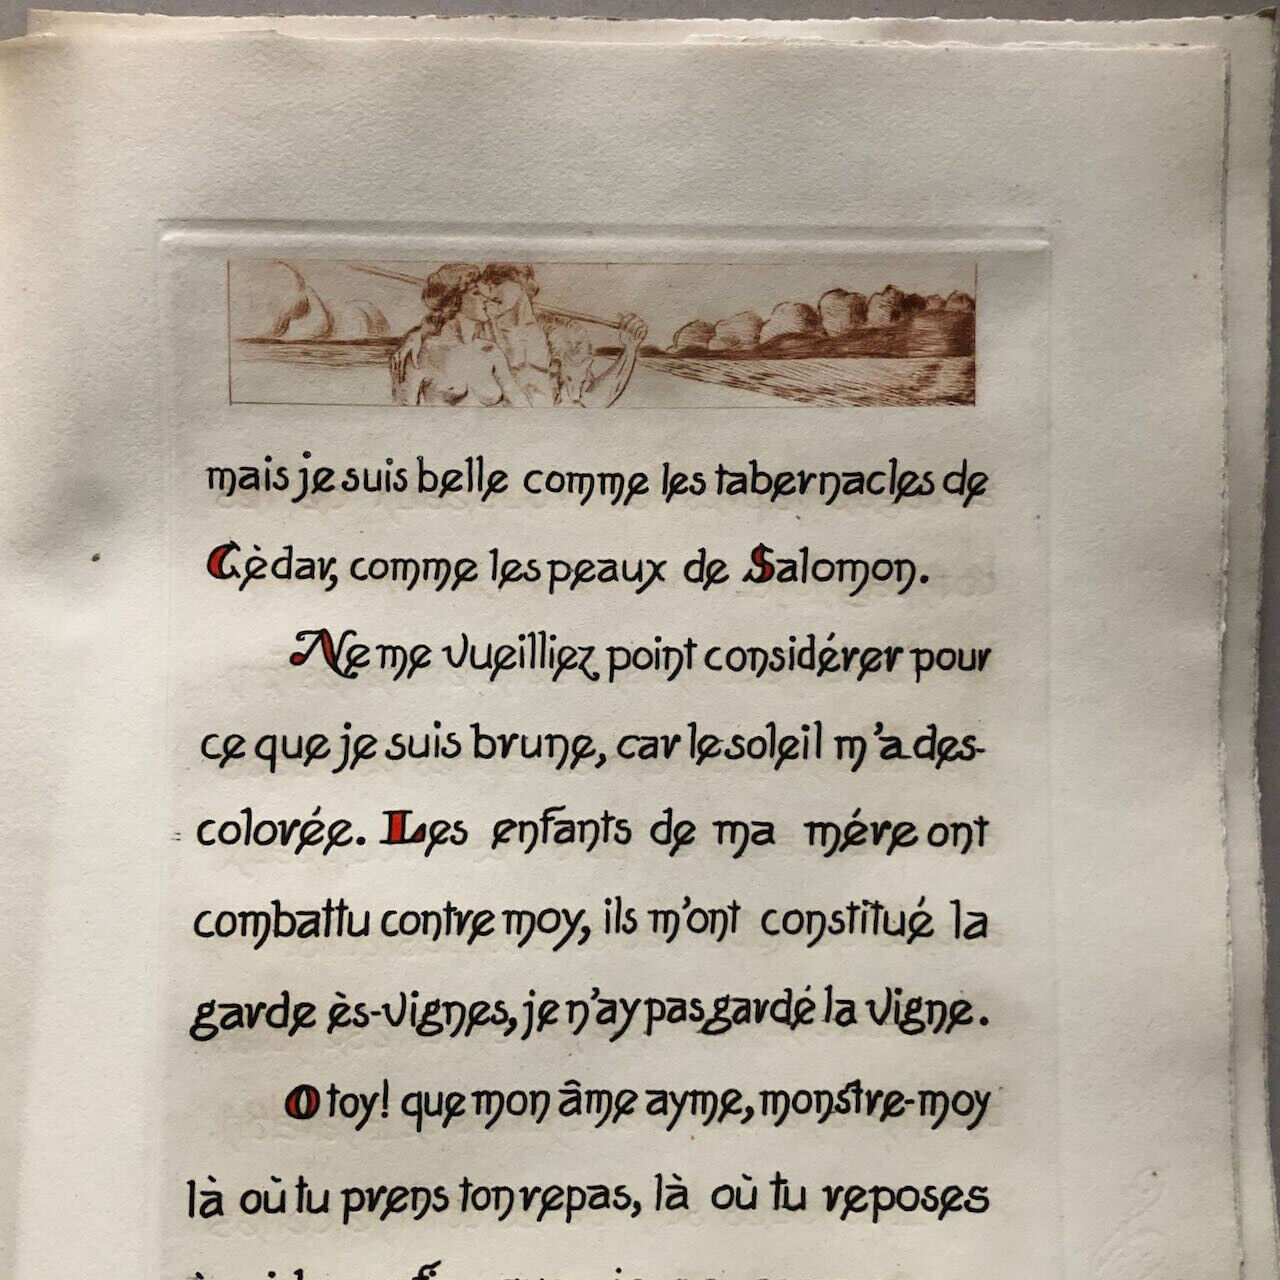 mais je suis belle comme les tabernacles de
Cèdar, comme les peaux de Salomon.
Ne me vueilliez point considérer pour
ce que je suis brune, car le soleil m'a des-
colorée. Les enfants de ma mére ont
combattu contre moy, ils m'ont constitué la
garde ès-vignes, je n'ay pas gardé la vigne.
O toy! que mon âme ayme, monstre-moy
là où tu prens ton repas, là où tu reposes